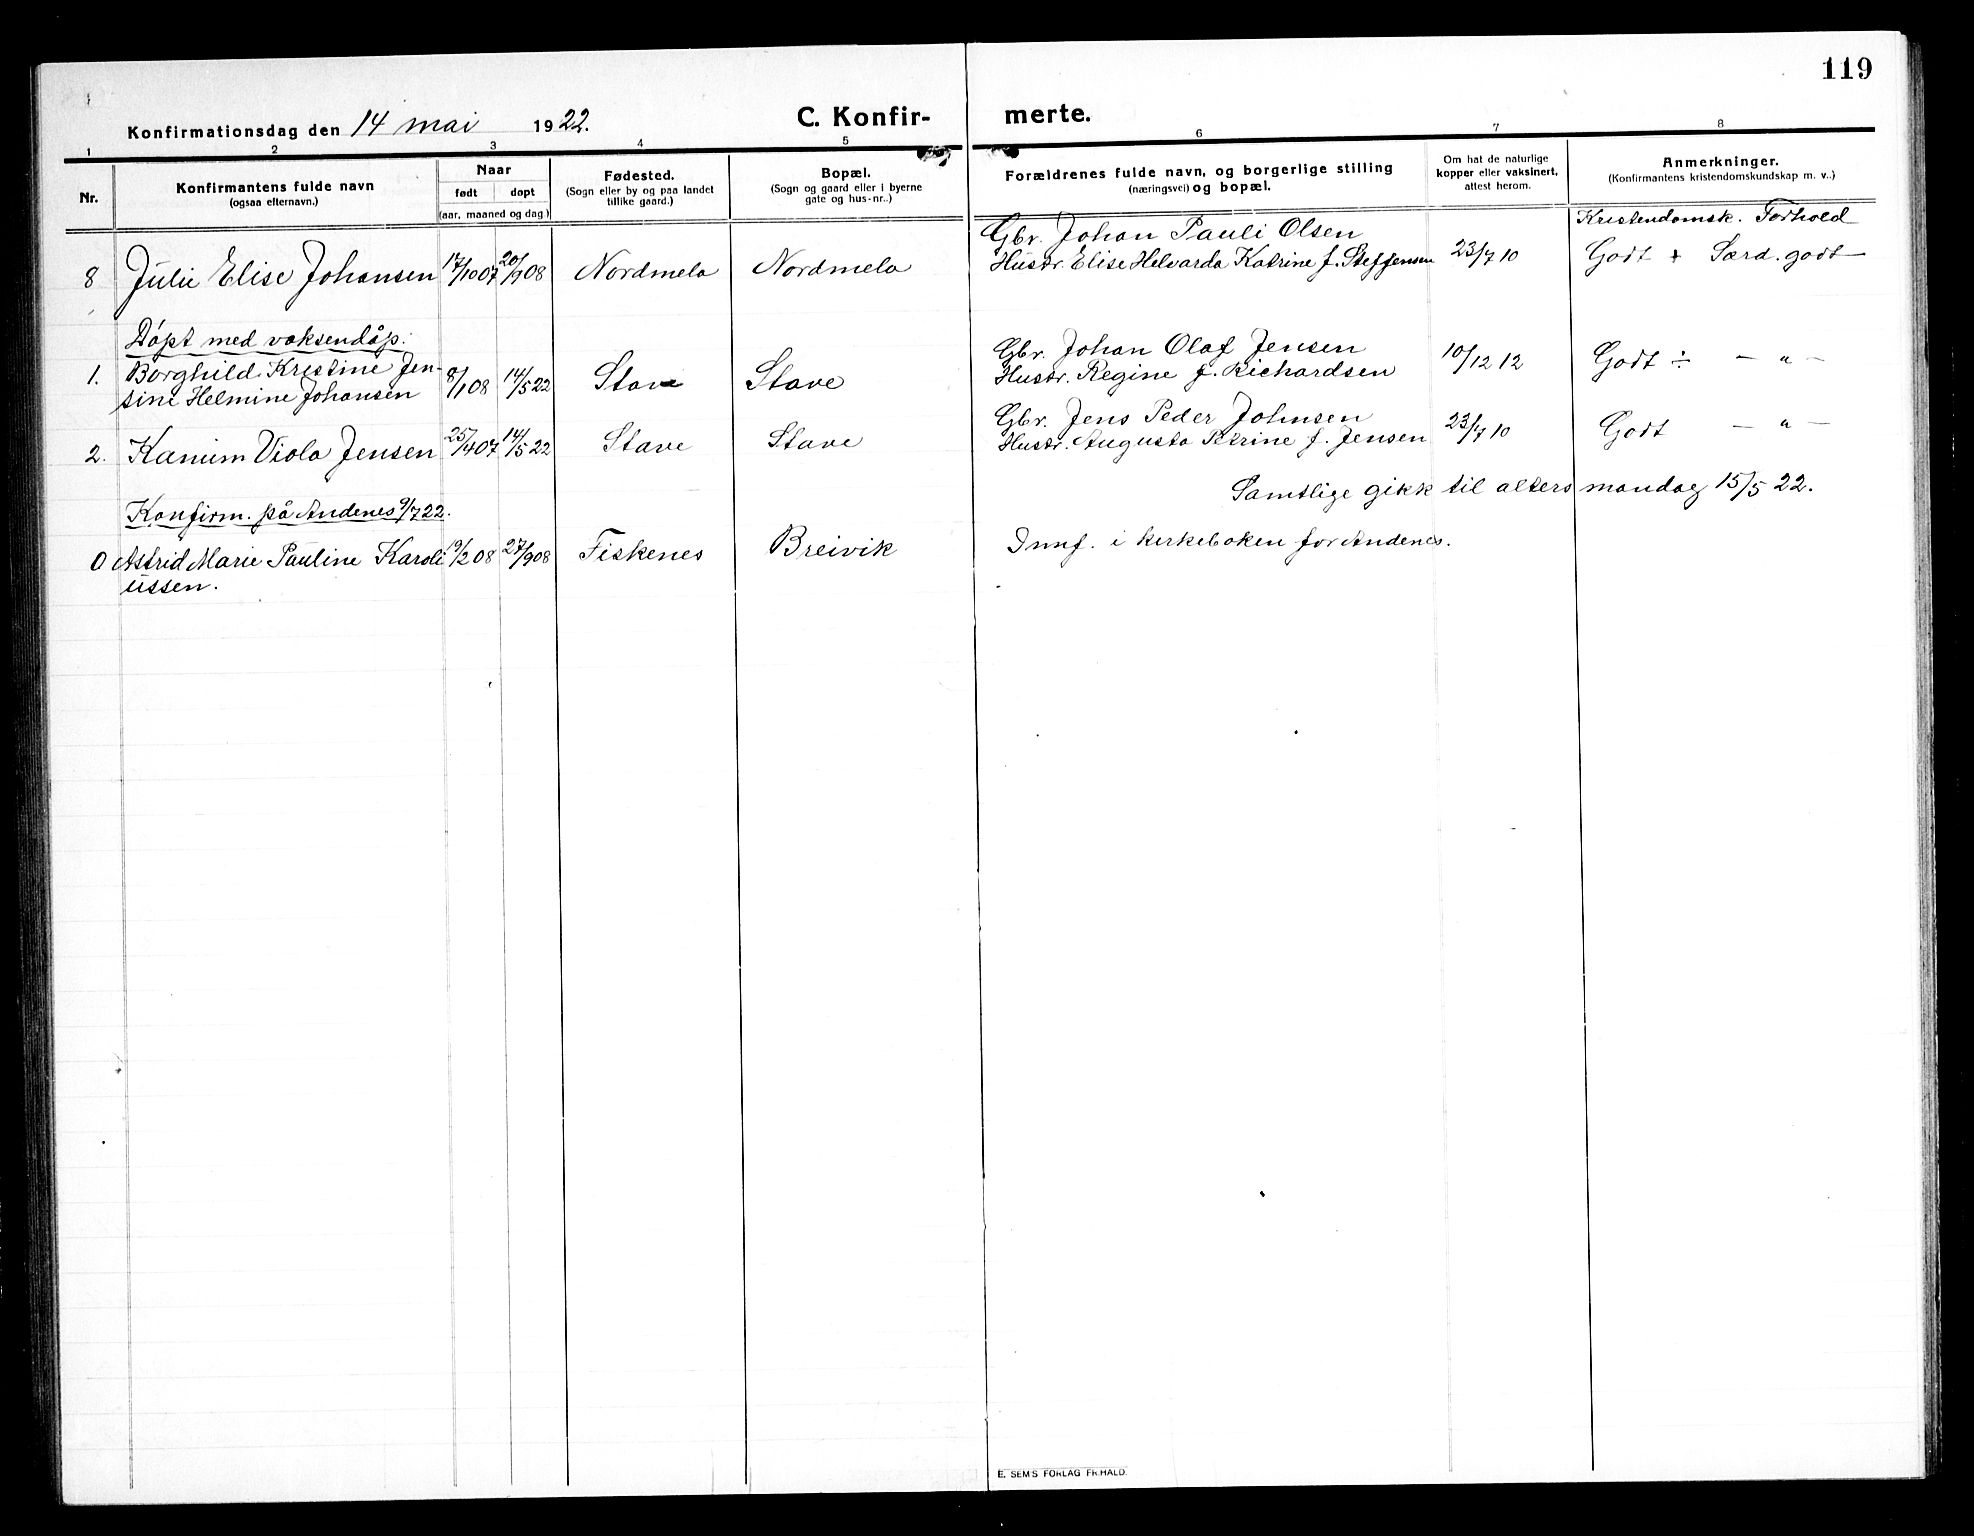 119
Konfirmationsdag den 14 mai 1922.
C. Konfir-
merte.
1 2 3 4 5 6 7 8
Nr.
Konfirmantens fulde navn
(ogsaa efternavn.)
Naar
født døpt
(aar, maaned og dag)
Fødested.
(Sogn eller by og paa landet
tillike gaard.)
Bopæl.
(Sogn og gaard eller i byerne
gate og hus-nr..)
Forældrenes fulde navn, og borgerlige stilling
(næringsvei) og bopæl.
Om hat de naturlige
kopper eller vaksinert,
attest herom.
Anmerkninger.
(Konfirmantens kristendomskundskap m. v..)
Kristendomsk. Forhold
Gbr. Johan Pauli Olsen
8 Julie Elise Johansen 17/10 07 20/9 08 Nordmela Nordmela Hustr. Elise Helvarda Katrine f. Steffensen 23/7 10 Godt + Særd. godt
Døpt med voksendåp:
Gbr. Johan Olaf Jensen
1. Borghild Kristine Jen-
sine Helmine Johansen 8/1 08 14/5 22 Stave Stave Hustr. Regine f. Richardsen 10/12 12 Godt ÷ — " —
Gbr. Jens Peder Johnsen
2. Kanum Viola Jensen 25/4 07 14/5 22 Stave Stave Hustr. Augusta Petrine f. Jensen 23/7 10 Godt — " —
Samtlige gikk til alters mandag 15/5 22.
Konfirm. på Andenes 9/7 22.
0 Astrid Marie Pauline Karoli 19/2 08 27/9 08 Fiskenes Breivik Innf. i kirkeboken for Andenes.
ussen.
E. SEM'S FORLAG FR.HALD.